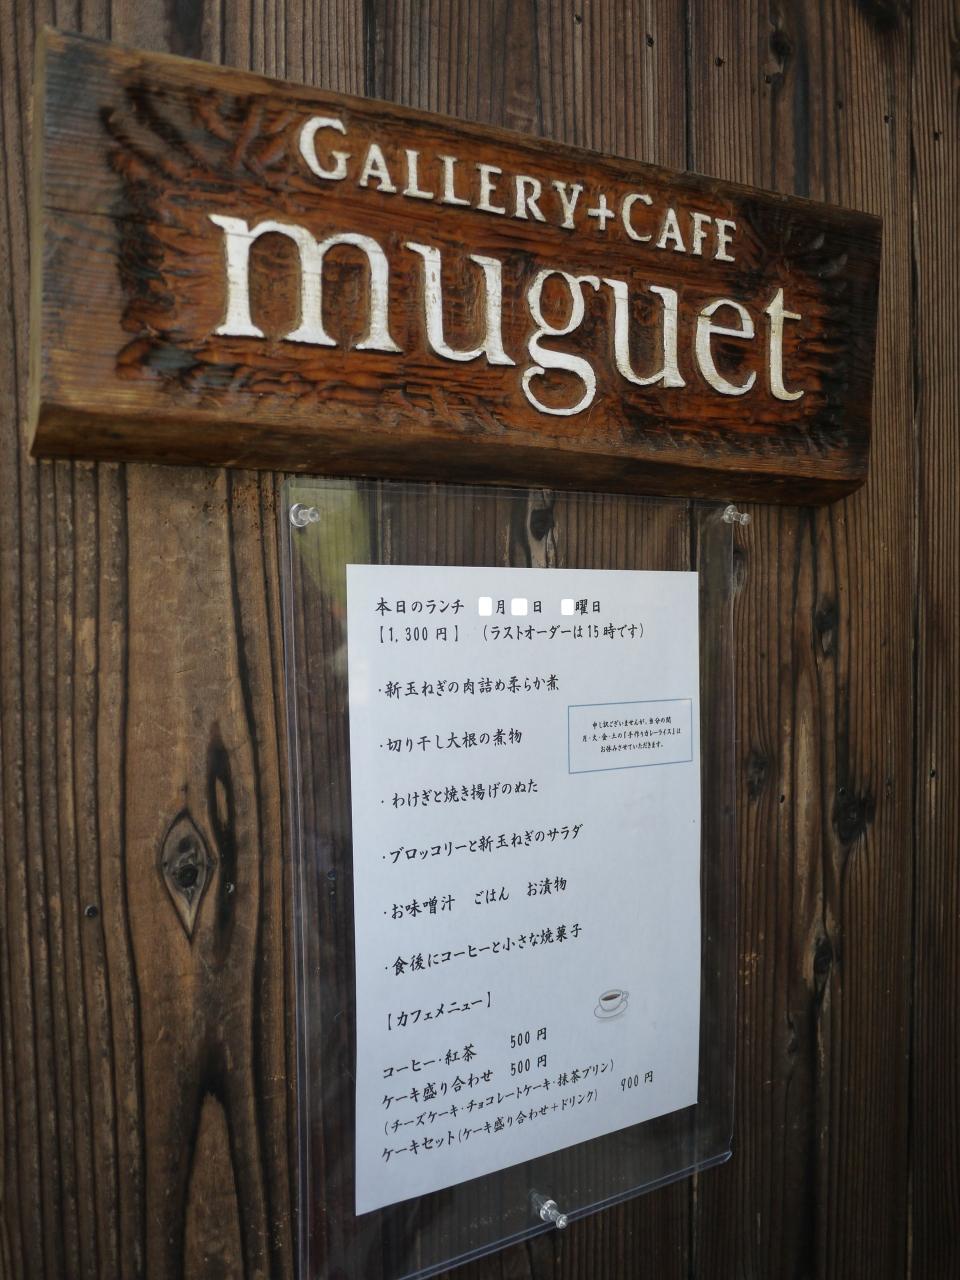 GALLERY+CAFE
muguet
本日のランチ 月 日 曜日
【1,300円】 (ラストオーダーは15時です)
・新玉ねぎの肉詰め柔らか煮
・切り干し大根の煮物
申し訳ございませんが、当分の間
月・火・金・土の『手作りカレーライス』は
お休みさせていただきます。
・わけぎと焼き揚げのぬた
・ブロッコリーと新玉ねぎのサラダ
・お味噌汁 ごはん お漬物
・食後にコーヒーと小さな焼菓子
【カフェメニュー】
コーヒー・紅茶 500円
ケーキ盛り合わせ 500円
(チーズケーキ・チョコレートケーキ・抹茶プリン)
ケーキセット(ケーキ盛り合わせ+ドリンク) 900円